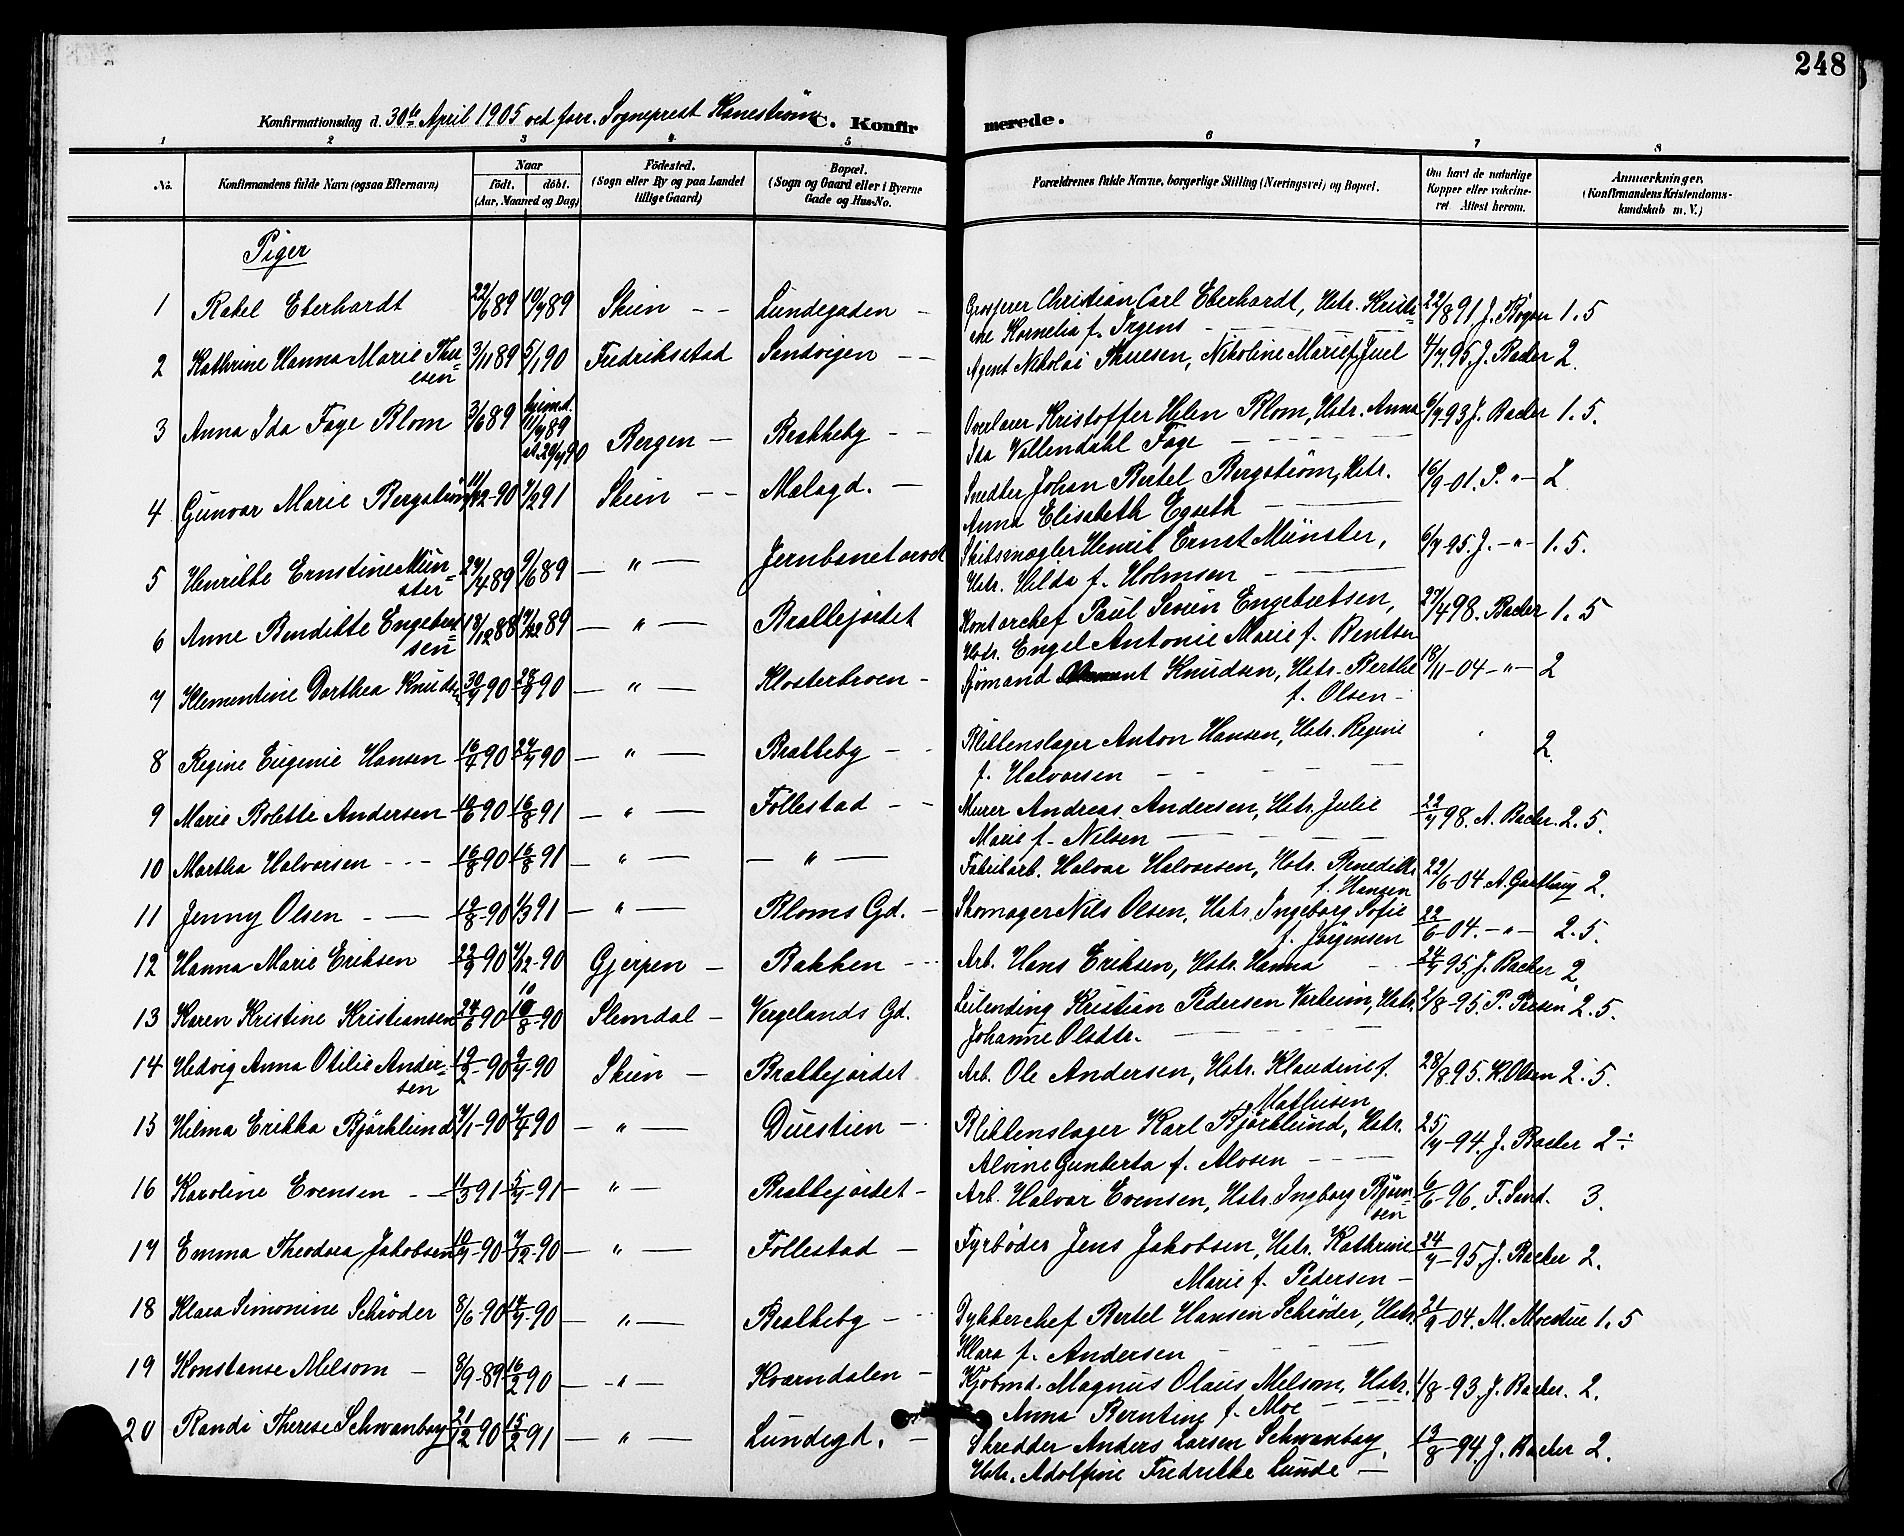 248
Konfirmationsdag d. 30te April 1905 ved forr. Sogneprest Hanestrøm
C. Konfirmerede.
1 2 3 4 5 6 7 8
No. Konfirmandens fulde Navn (ogsaa Efternavn) Naar födt. döbt. (Aar, Maaned og Dag) Födested. (Sogn eller By og paa Landet tillige Gaard) Bopæl. (Sogn og Gaard eller i Byerne Gade og Hus-No. Forældrenes fulde Navne, borgerlige Stilling (Næringsvei) og Bopæl. Om havt de naturlige Kopper eller vakcineret. Attest herom. Anmærkninger. (Konfirmandens Kristendomskundskab m. V.)
Piger
1 Rakel Eberhardt 22/6 89 19/7 89 Skien - - Lundegaden - Grosserer Christian Carl Eberhardt, Hstr. Kristine Kornelia f. Irgens 22/8 91 J. 1.5
2 Kathrine Hanna Marie Thuesen 3/11 89 5/1 90 Fredriksstad Sandvigen - - Agent Nikolai Thuesen, Nikoline Marie f. Juel 4/7 95. J. Backer 2.
3 Anna Ida Faye Blom 3/6 89 hjemd. 11/7 89 st. 20/7 90 Bergen - Brakkeby - - Overlærer Kristoffer Helen Blom, Hstr. Anna Ida Vollendahl Faye 6/7 93 J. Backer 1.5.
4 Gunvor Marie Bergstrøm 11/12-90 7/2 91 Skien - - Mælagd. - Snedker Johan Bertel Bergstrøm, Hstr. Anna Elisabeth Egseth 16/9-01. P. -"- 2
5 Henrikke Ernstine Münster 27/4 89 9/6 89 - " - Jernbanetorvet Skibsmægler Henrik Ernst Münster, Hstr. Hilda f. Holmsen 6/7-95. J. -"- 1.5.
6 Anne Bendikte Engebretsen 13/12 88 17/2 89 - " - Brekkejordet Kontorchef Paul Severin Engebretsen, Hstr. Engel Antonie Marie f. Bentsen 27/4 98. Backer 1.5
7 Klementine Dorthea Knuds. 30/7 90 28/9 90 - " - Klosterbroen - Sjømand Knudsen, Hstr. Berthe f. Olsen - 18/11-04 -"- 2
8 Regine Eugenie Hansen 16/4 90 27/7 90 - " - Brakkeby - Blikkenslager Anton Hansen, Hstr. Regine f. Halvorsen 2.
9 Marie Bolette Andersen 19/6 90 16/8 91 - " - Follestad - - Murer Andreas Andersen, Hstr. Julie Marie f. Nilsen 22/7 98. A. Backer. 2.5.
10 Martha Halvorsen - - - 16/8 90 16/8 91 - " - - " - Fabrikarb. Halvor Halvorsen, Hstr. Benedikte f. Hansen 22/6-04 A. 2.
11 Jenny Olsen - - 19/8-90 1/3 91 - " - Bloms Gd. - Skomager Nils Olsen, Hstr. Ingeborg Sofie f. Jørgensen 22/6-04. -"- 2.5.
12 Hanna Marie Eriksen 22/9 90 7/12-90 Gjerpen - Bakken - Arb. Hans Eriksen, Hstr. Hanna 24/7 95. J. Backer 2.
13 Karen Kristine Kristiansen 27/6 90 10/8-90 Slemdal - Vergelands Gd. Leilending Kristian Pedersen Verheim, Hstr. Johanne Olsdtr. 2/8-95. P. 2.5.
14 Hedvig Anna Otilie Andersen 19/2-90 9/7-90 Skien - Brekkejordet Arb. Ole Andersen, Hstr. Klaudine f. Mathisen 28/8 95. K. Olsen 2.5.
15 Hilma Erikka Björklund 7/1-90 7/4 90 - " - Duestien - Blikkenslager Karl Björklund, Hstr. Alvine Gunberta f. Alvsen 25/7-94. J. Backer 2÷
16 Karoline Evensen - - 11/3 91 5/7-91 - " - Brekkejordet - Arb. Halvor Evensen, Hstr. Ingborg Björnsen 6/6-96. F. Sand. 3.
17 Emma Theodora Jakobsen 10/7-90 7/12-90 - " - Follestad - Fyrbøder Jens Jakobsen, Hstr. Kathrine Marie f. Pedersen - 24/7-95. J. Backer 2.
18 Klara Simonine Schrøder 8/6-90 14/7-90 - " - Brakkeby - Dykkerchef Bertel Hansen Schrøder, Hstr. Klara f. Andersen 21/9-04. M. Moestue 1.5
19 Konstanse Melsom - 8/9-89 16/2 90 - " - Kværndalen - Kjöbmd. Magnus Olaus Melsom, Hstr. Anna Bernting f. Moe 1/8-93. J. Backer. 2.
20 Randi Therese Schwanbay 21/12 90 15/2 91 - " - Lundegd. - Skredder Anders Larsen Schwanbay, Hstr. Adolfine Fredrikke Lunde - 13/8-94. J. Backer 2.